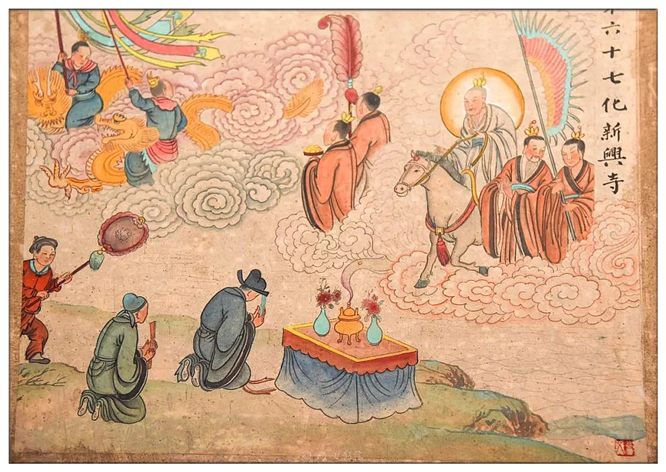 第六十七化新興寺